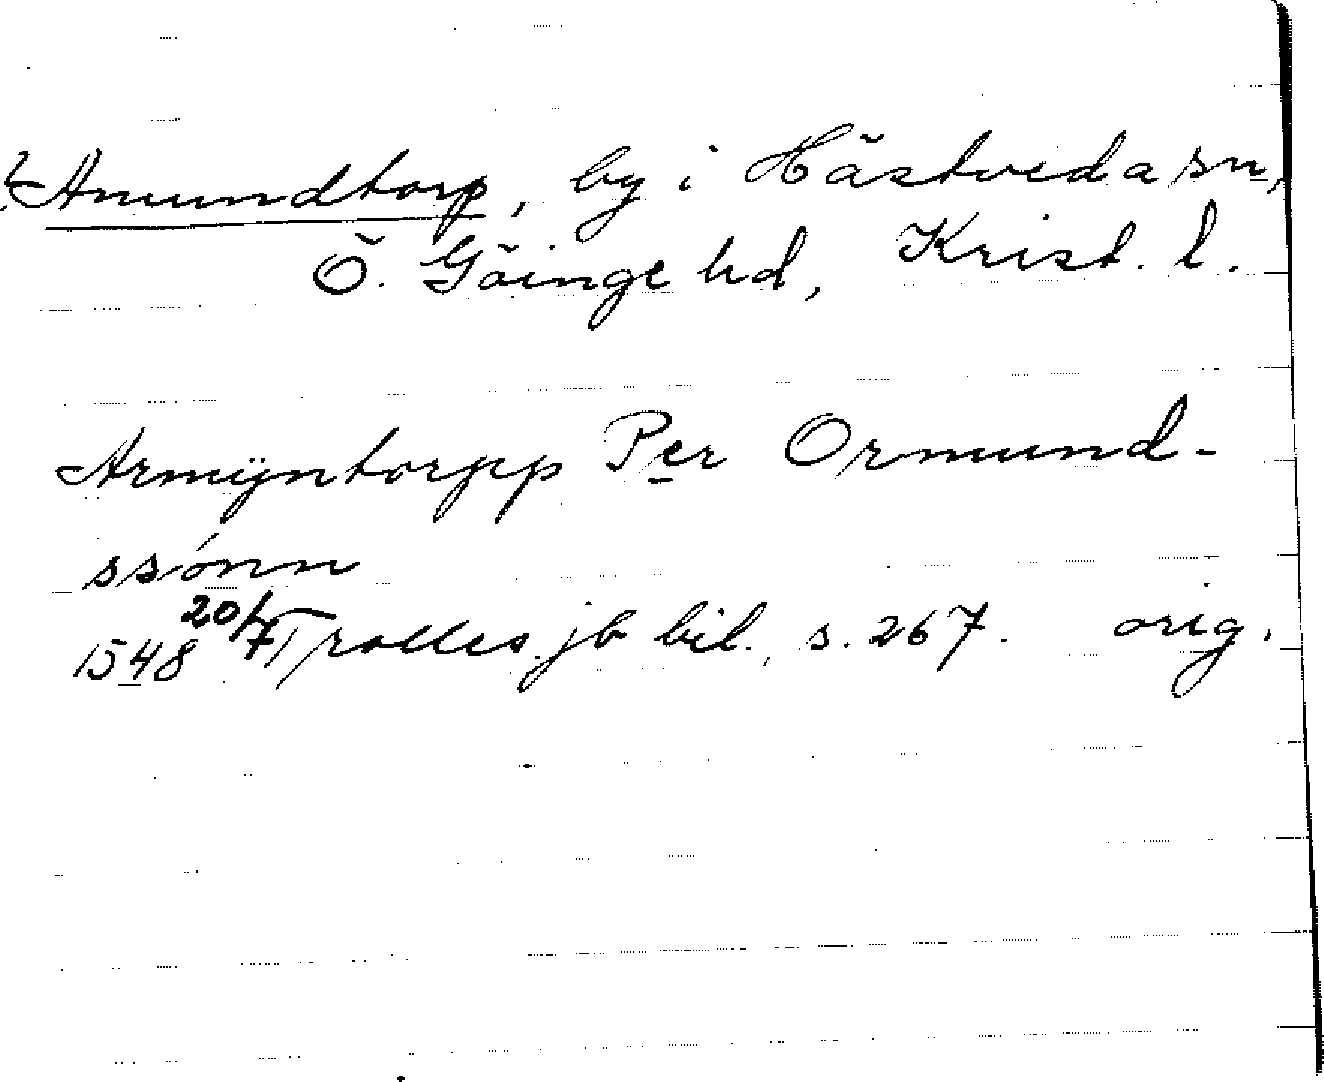 ? Amundtorp, by i Hästveda sn,
Ö. Göinge hd, Krist. l.
Armÿntorpp Per Ormund-
ssónn
1548 20/7 Trolles jb bil., s. 267. orig.